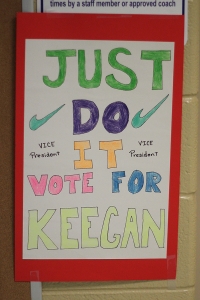 times by a staff member or approved coach
JUST
DO
VICE President VICE President
IT
VOTE FOR
KEEGAN